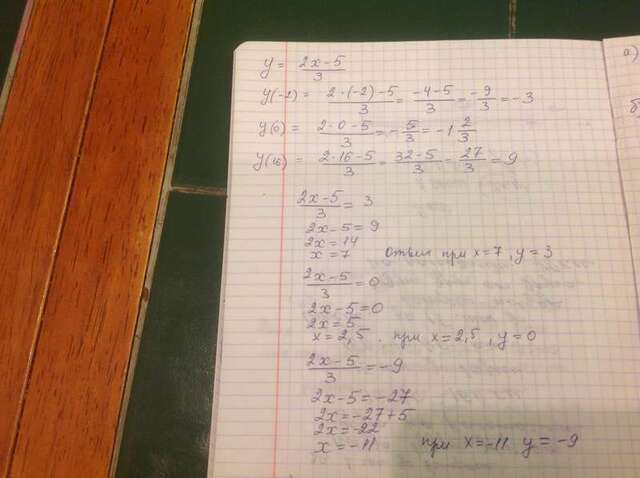 y = (2x-5)/3
y(-2) = (2·(-2)-5)/3 = (-4-5)/3 = (-9)/3 = -3
y(0) = (2·0-5)/3 = -5/3 = -1 2/3
y(16) = (2·16-5)/3 = (32-5)/3 = 27/3 = 9
(2x-5)/3 = 3
2x-5=9
2x=14
x=7 Ответ при x=7, y=3
(2x-5)/3 = 0
2x-5=0
2x=5
x=2,5. при x=2,5, y=0
(2x-5)/3 = -9
2x-5=-27
2x=-27+5
2x=-22
x=-11 при x=-11 y=-9
а)
б